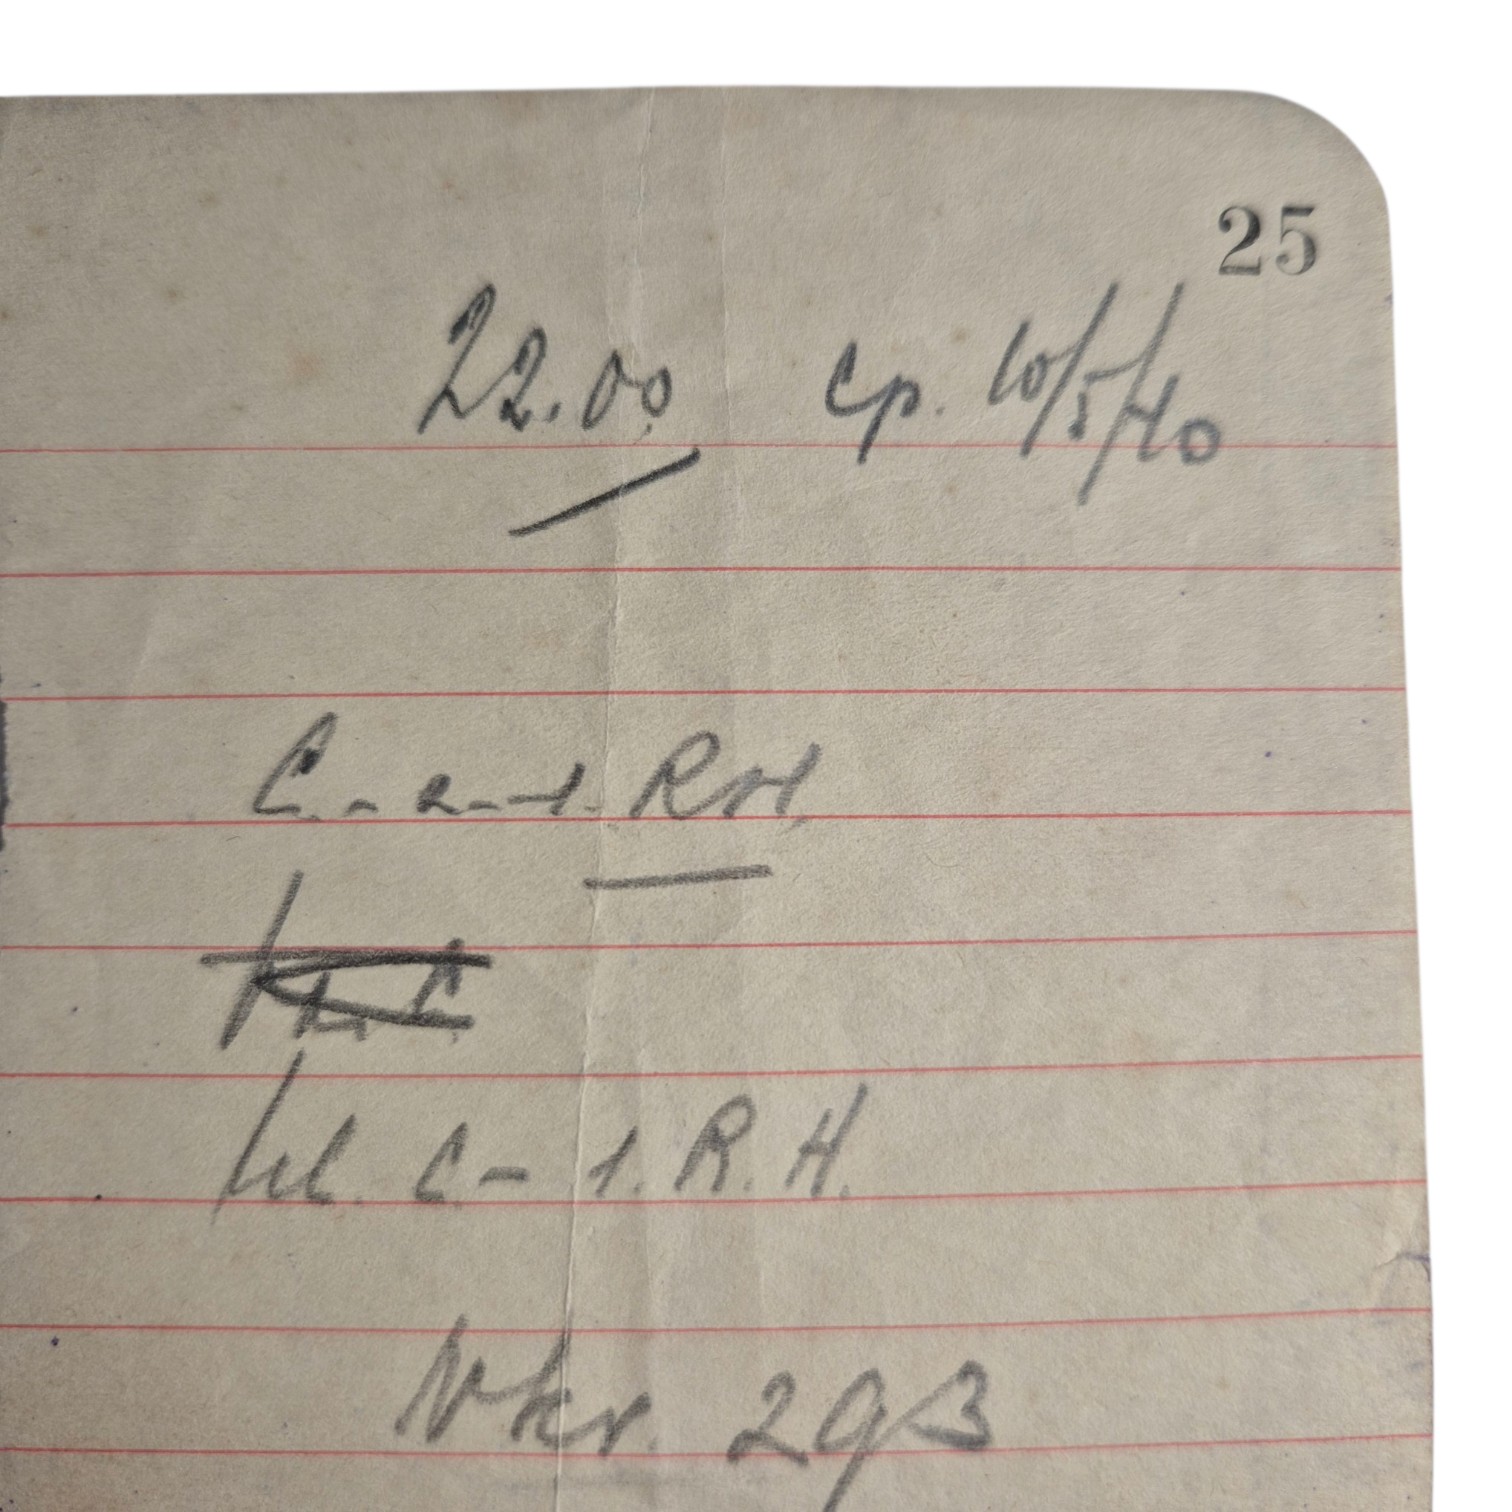 25
22.00 cp. 10/5/40
C.-a-1. RH.
tel. C- 1. R. H.
Nkr. 293